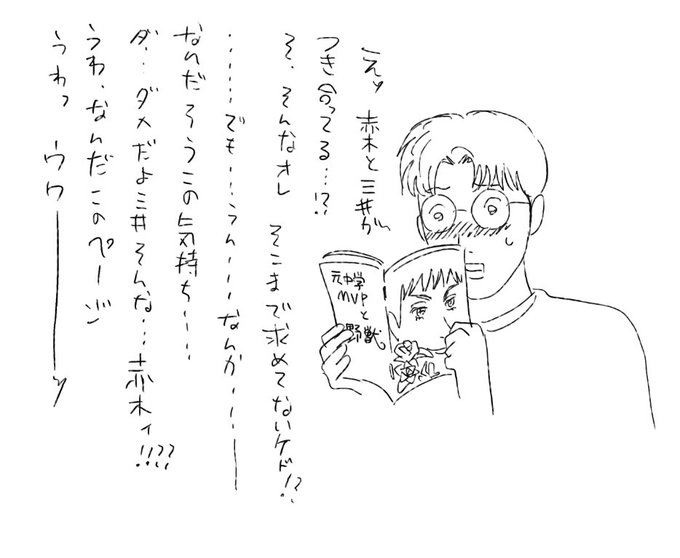 えッ 赤木と三井が
つき合ってる…!?
そ、そんなオレ そこまで求めてないケド!?
……でも…うん…なんか…ー
なんだろうこの気持ち……
ダ… ダメだよ三井そんな… 赤木ィ!!??
うわ、なんだこのページ
うわっ ウワーーーッ
元中学
MVPと
野獣